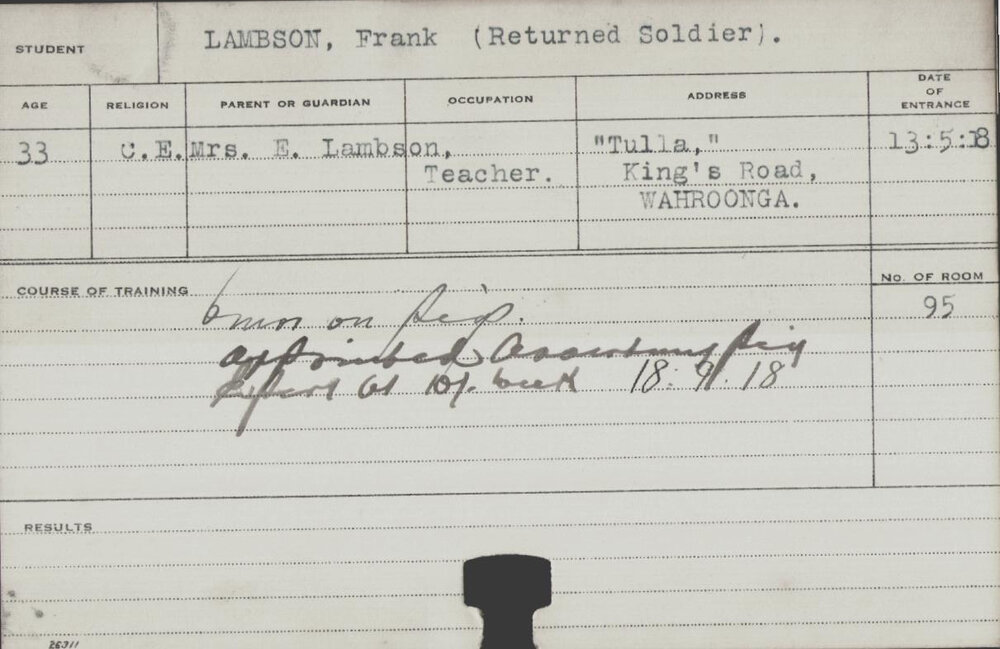 STUDENT
LAMBSON, Frank (Returned Soldier).
AGE
RELIGION
PARENT OR GUARDIAN
OCCUPATION
ADDRESS
DATE
OF
ENTRANCE
33
C.E.
Mrs. E. Lambson,
Teacher.
"Tulla,"
King's Road,
WAHROONGA.
13:5:18
COURSE OF TRAINING
No. OF ROOM
95
6 mos on pigs.
appointed Assistant pig
Expert at 10/. week 18.9.18
RESULTS